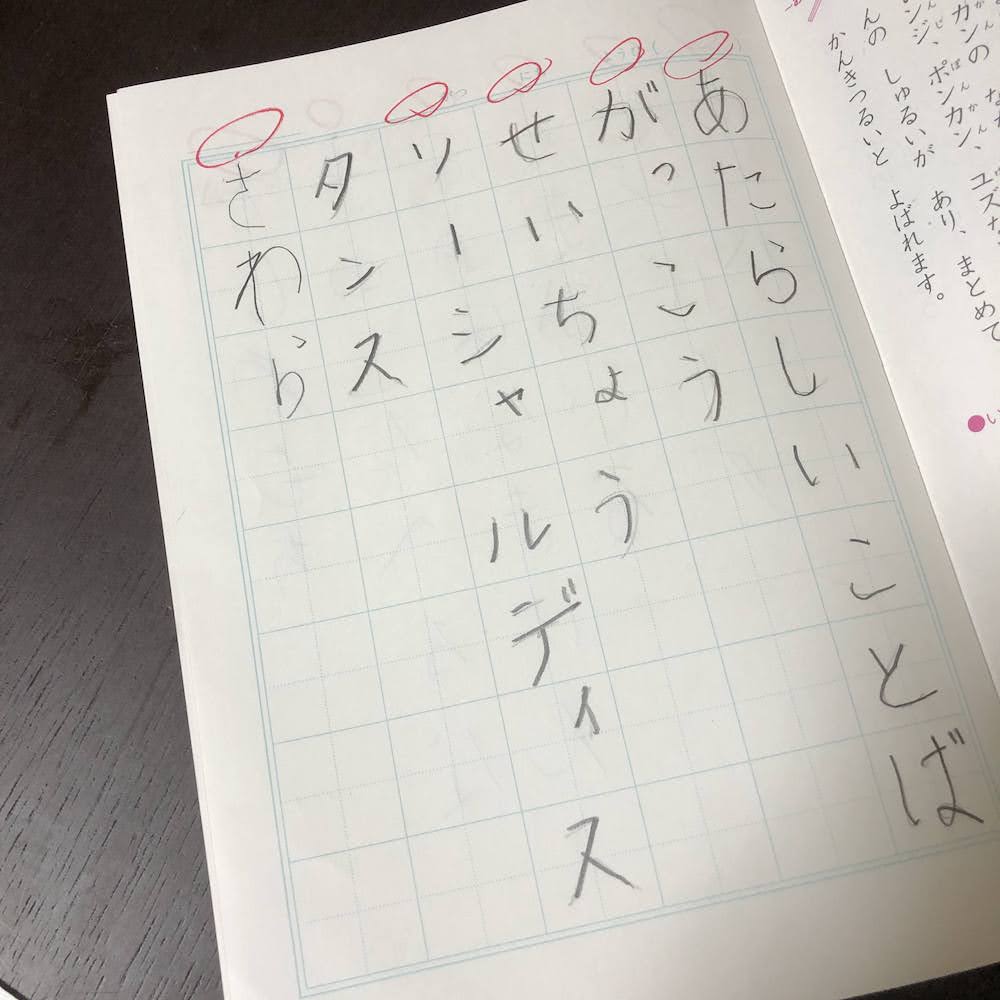 カンの
ンジ、ポンカン、ユズな
んの しゅるいが あり、まとめて
かんきつるいと よばれます。
あたらしいことば
がっこう
せいちょう
ソーシャルディス
タンス
さわら